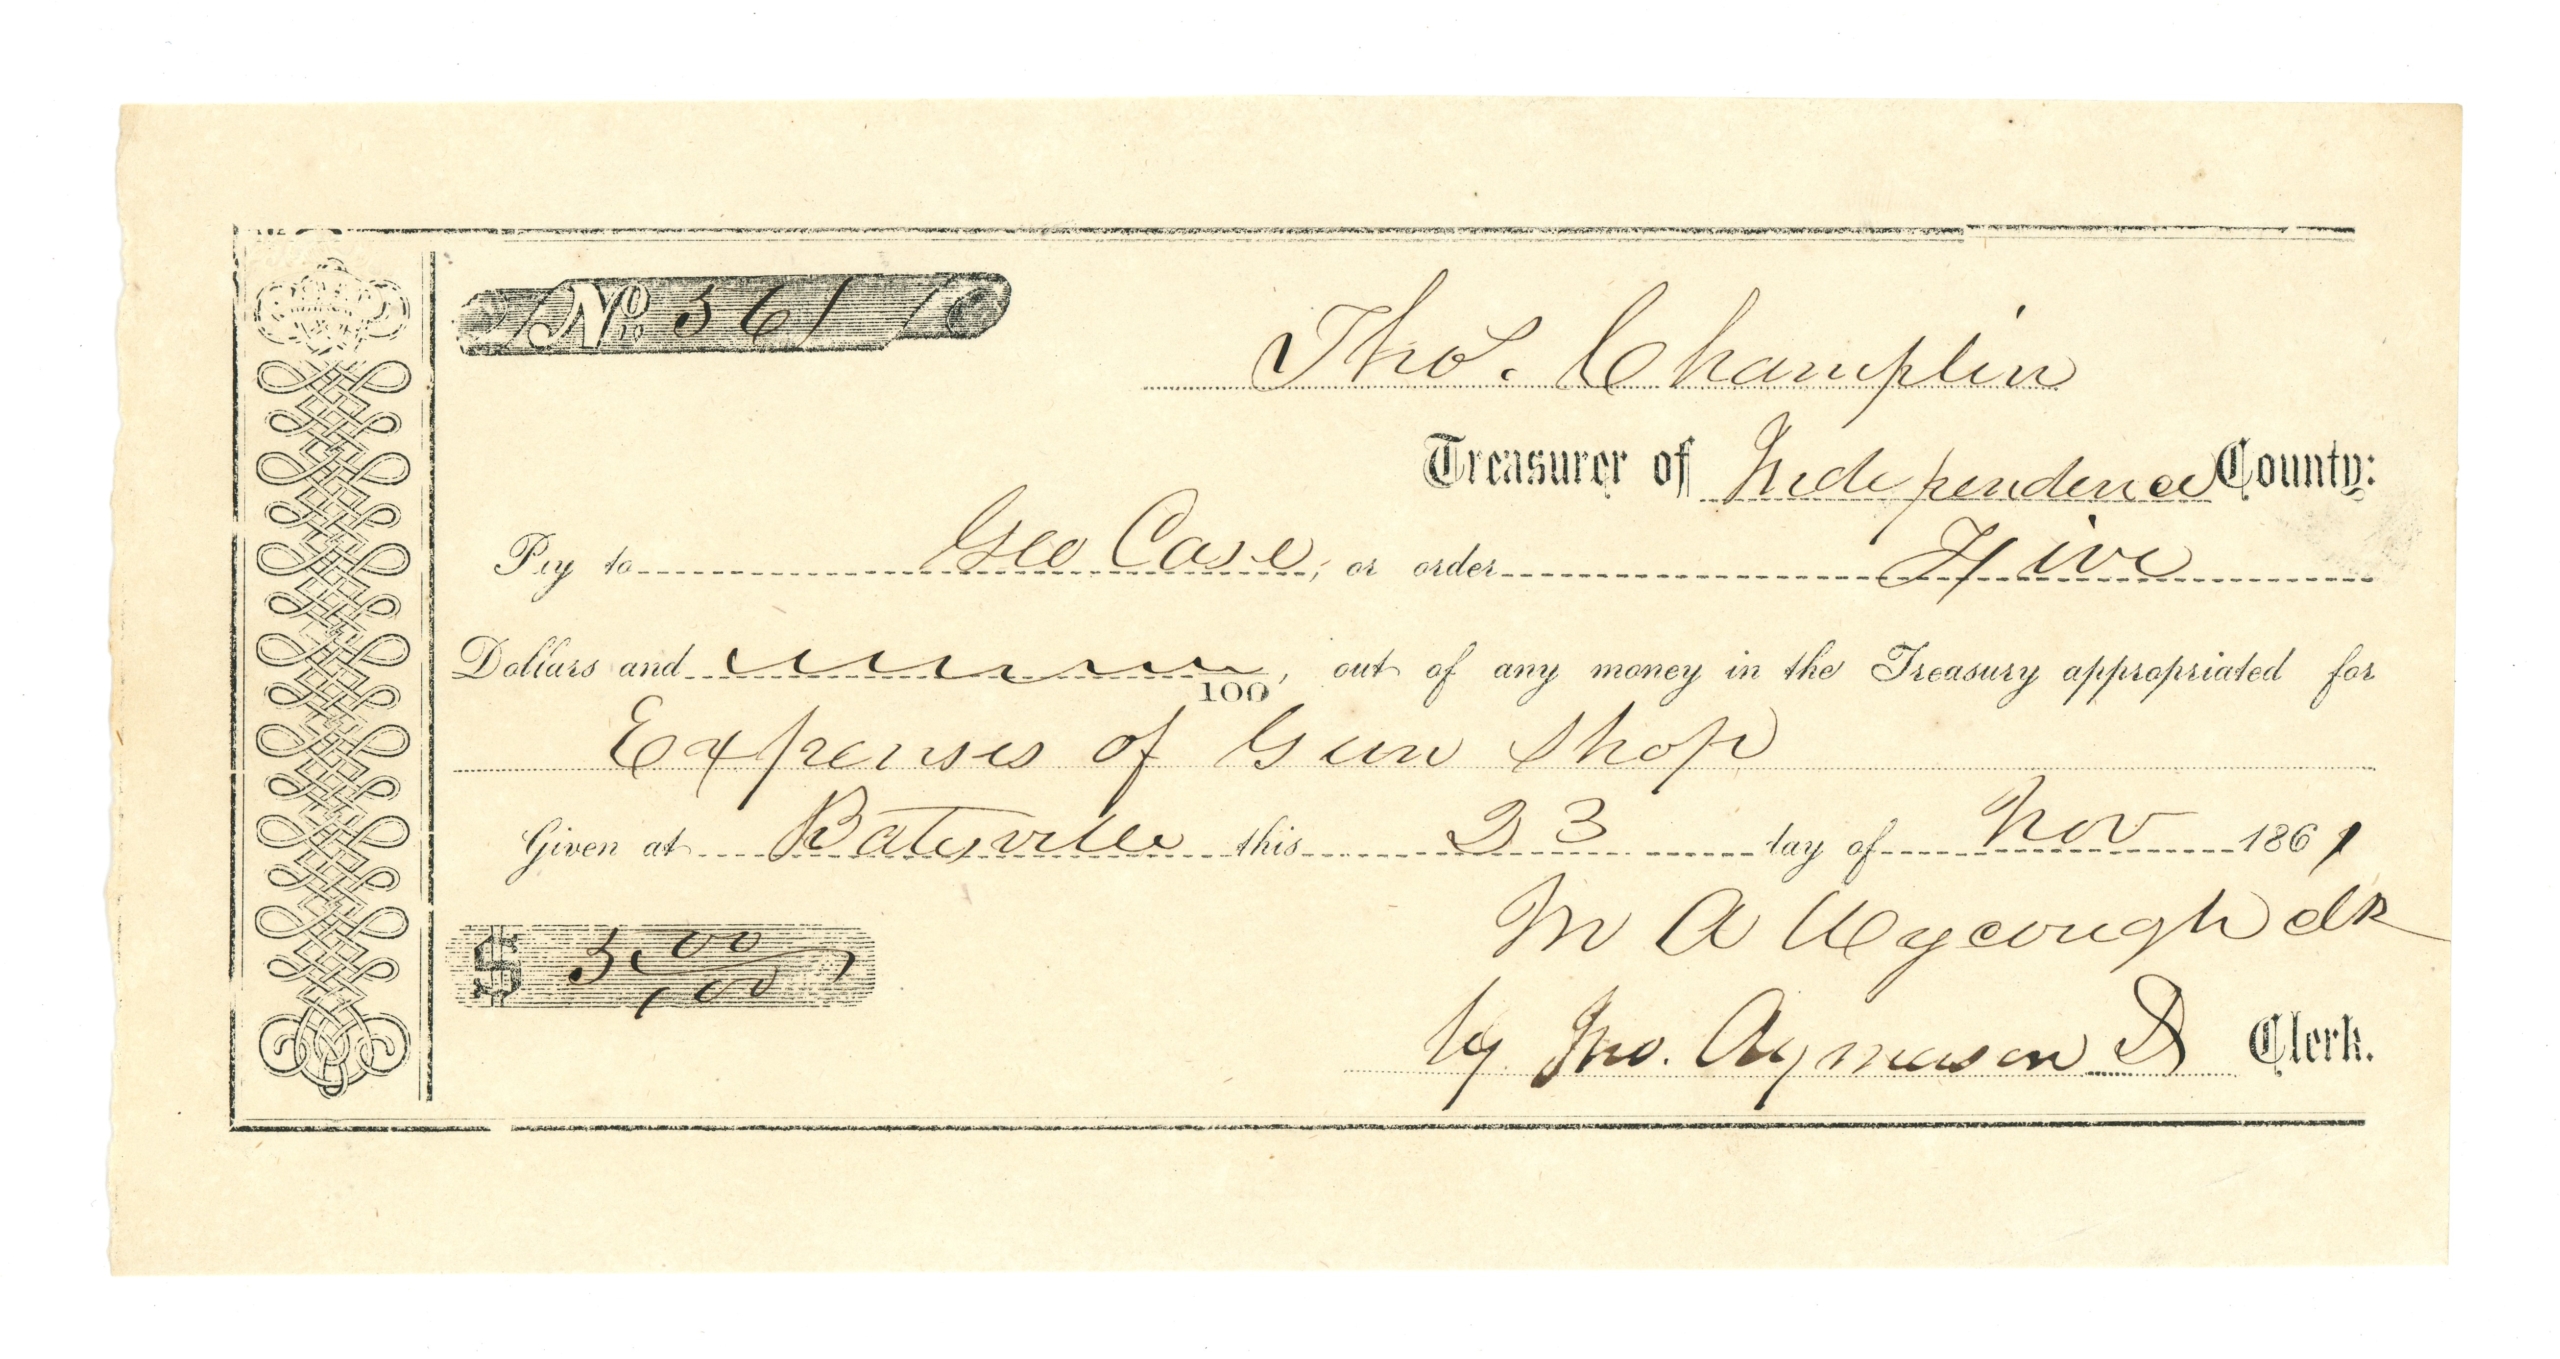 No. 561
Thos. Champlin
Treasurer of Independence County:
Pay to Geo Case, or order Five
Dollars and /100, out of any money in the Treasury appropriated for
Expenses of Gun Shop
Given at Batesville this 23 day of Nov 1861
$ 5.00/100
M A Wycough clk
by Jno. D Clerk.